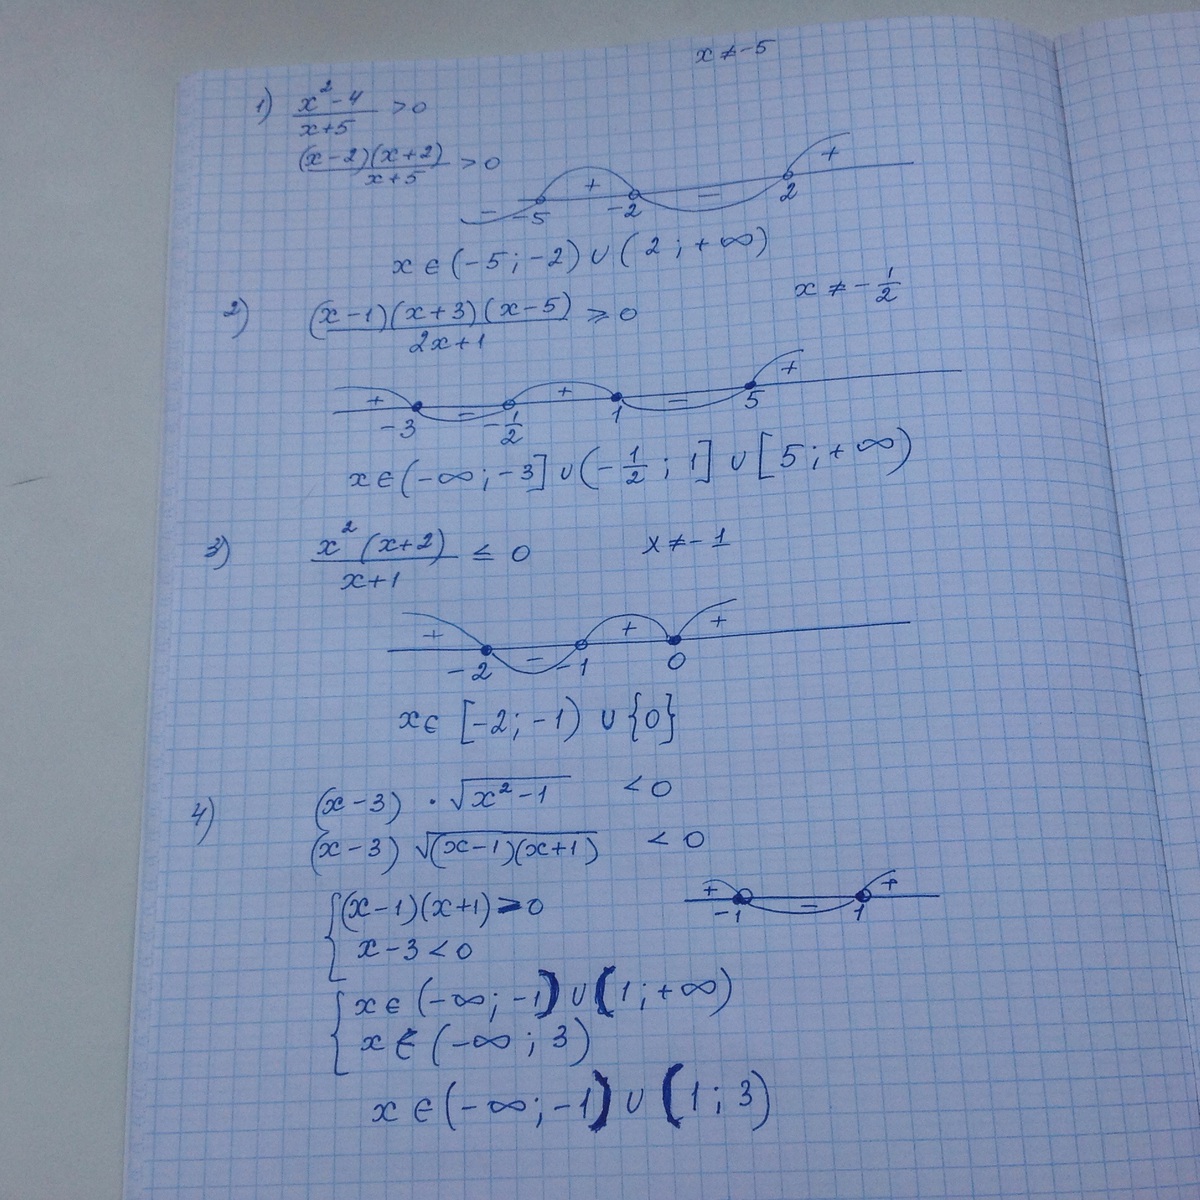 x ≠ -5
1) (x² - 4)/(x+5) > 0
(x-2)(x+2)/(x+5) > 0
- -5 + -2 - 2 +
x ∈ (-5; -2) ∪ (2; +∞)
2) (x-1)(x+3)(x-5)/(2x+1) ≥ 0 x ≠ -1/2
+ -3 - -1/2 + 1 - 5 +
x ∈ (-∞; -3] ∪ (-1/2; 1] ∪ [5; +∞)
3) x²(x+2)/(x+1) ≤ 0 x ≠ -1
+ -2 - -1 + 0 +
x ∈ [-2; -1) ∪ {0}
4) (x-3) · √(x²-1) < 0
(x-3) √((x-1)(x+1)) < 0
{ (x-1)(x+1) > 0
x-3 < 0
+ -1 - 1 +
{ x ∈ (-∞; -1) ∪ (1; +∞)
x ∈ (-∞; 3)
x ∈ (-∞; -1) ∪ (1; 3)